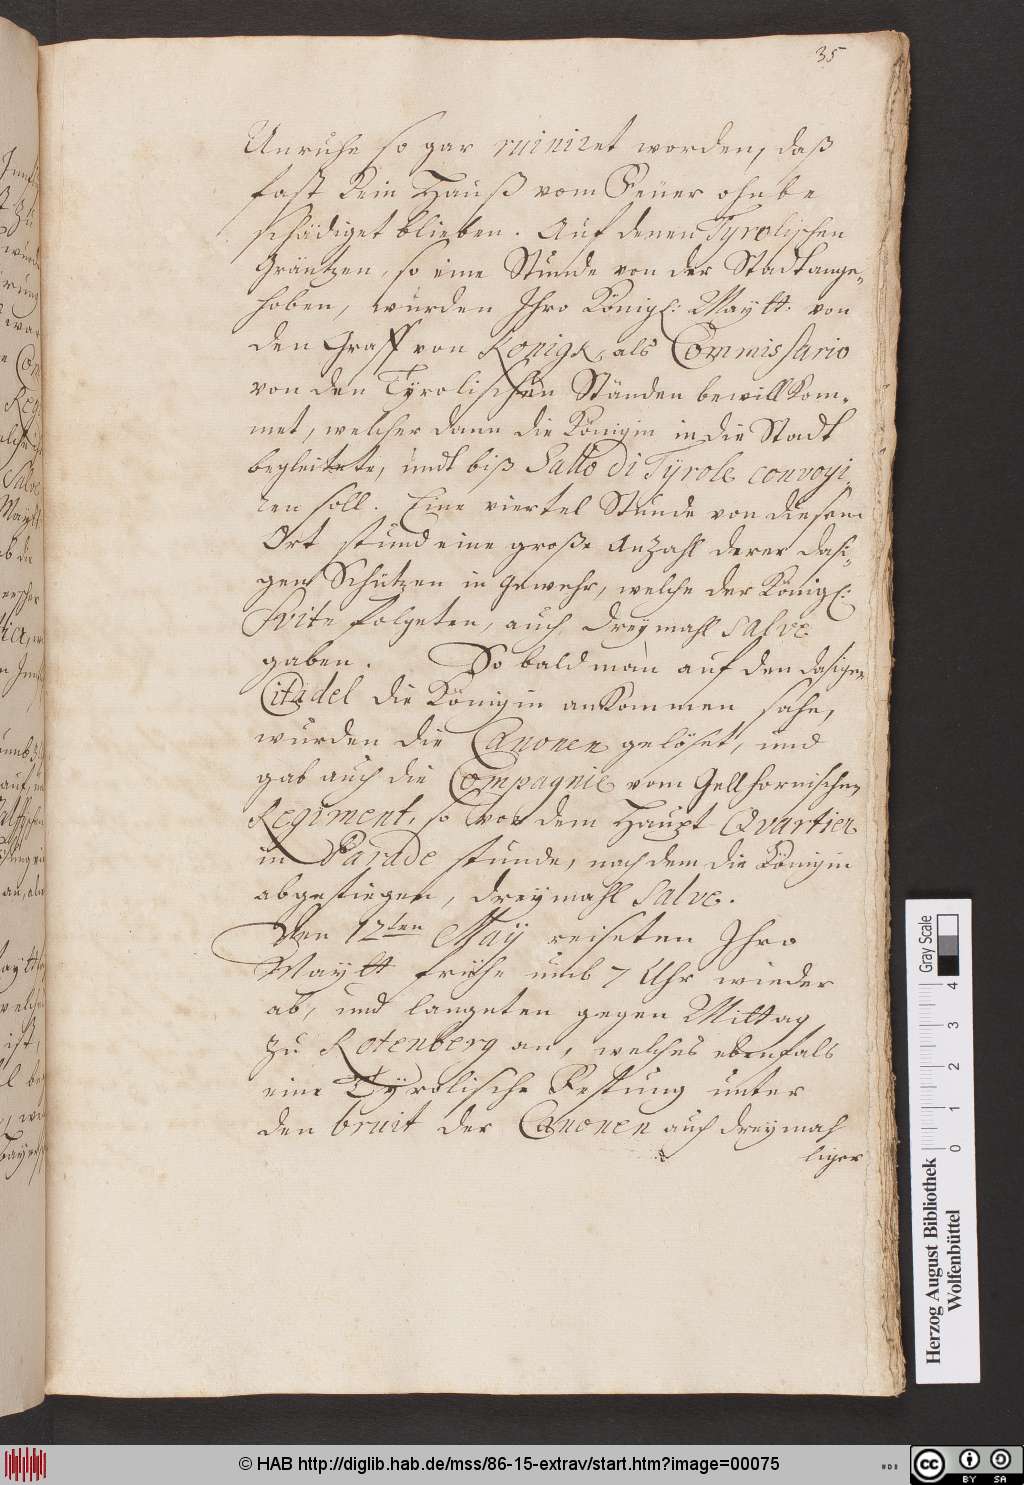 35
Unruhe so gar ruiniret worden, daß
fast kein Hauß vom Feüer ohnbe
schädiget blieben. Auf denen Tyrolischen
Gräntzen, so eine Stunde von der Stadt ange-
hoben, wurden Ihro Königl: Maytt. von
den Graff von Konigk, als Commissario
von den Tyrolischen Ständen bewillkom-
met, welcher dann die Königin in die Stadt
begleitete, undt biß Salto di Tyrole convoyi-
ren soll. Eine viertel Stunde von diesem
Ort stund eine große Anzahl derer dasi-
gen Schützen in Gewehr, welche der Königl:
Svite folgeten, auch dreymahl Salve
gaben. So bald man auf den dasigen
Citadel die Königin ankommen sahe,
wurden die Canonen gelöset, und
gab auch die Compagnie vom Gellhornischen
Regiment, so vor dem Haupt Qvartier
in Parade stunde, nachdem die Königin
abgestiegen, dreymahl Salve.
Den 12ten Maÿ reiseten Ihro
Maytt frühe umb 7 Uhr wieder
ab, und langeten gegen Mittag
zu Rotenberg an, welches ebenfals
eine Tyrolische Festung unter
den bruit der Canonen auch dreymah
liger
Gray Scale
0 1 2 3 4
Herzog August Bibliothek
Wolfenbüttel
© HAB http://diglib.hab.de/mss/86-15-extrav/start.htm?image=00075
cc BY SA